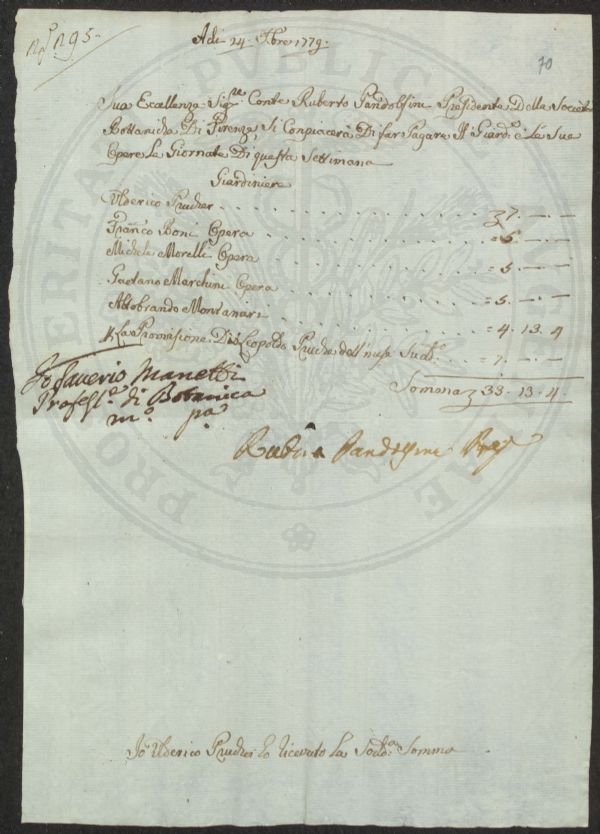 Nº 295.
Adi 24. 7bre 1779.
70
Sua Eccellenza Sigre Conte Ruberto Pandolfini Presidente Della Società
Bottanicha Di Firenze Si Conpiacerà Di far Pagare Il Giardre e Le Sue
Opere Le Giornate Di questa Settimana
Giardiniere
Ulderico Prucher 7. — . —
Franco Boni Opera = 6. — . —
Michele Morelli Opera = 5. — . —
Gaetano Marchini Opera = 5. — . —
Aldobrando Montanari = 4. 13. 4
La Provisione Di Leopoldo Prucher dell'mese Sudo = 7. — . —
Somma 33. 13. 4
Io Saverio Manetti
Professe di Botanica
mo pa
Ruberto Pandolfini Pres
Io Ulderico Prucher ho Riceuto La Soda Somma
PRO VERITATE